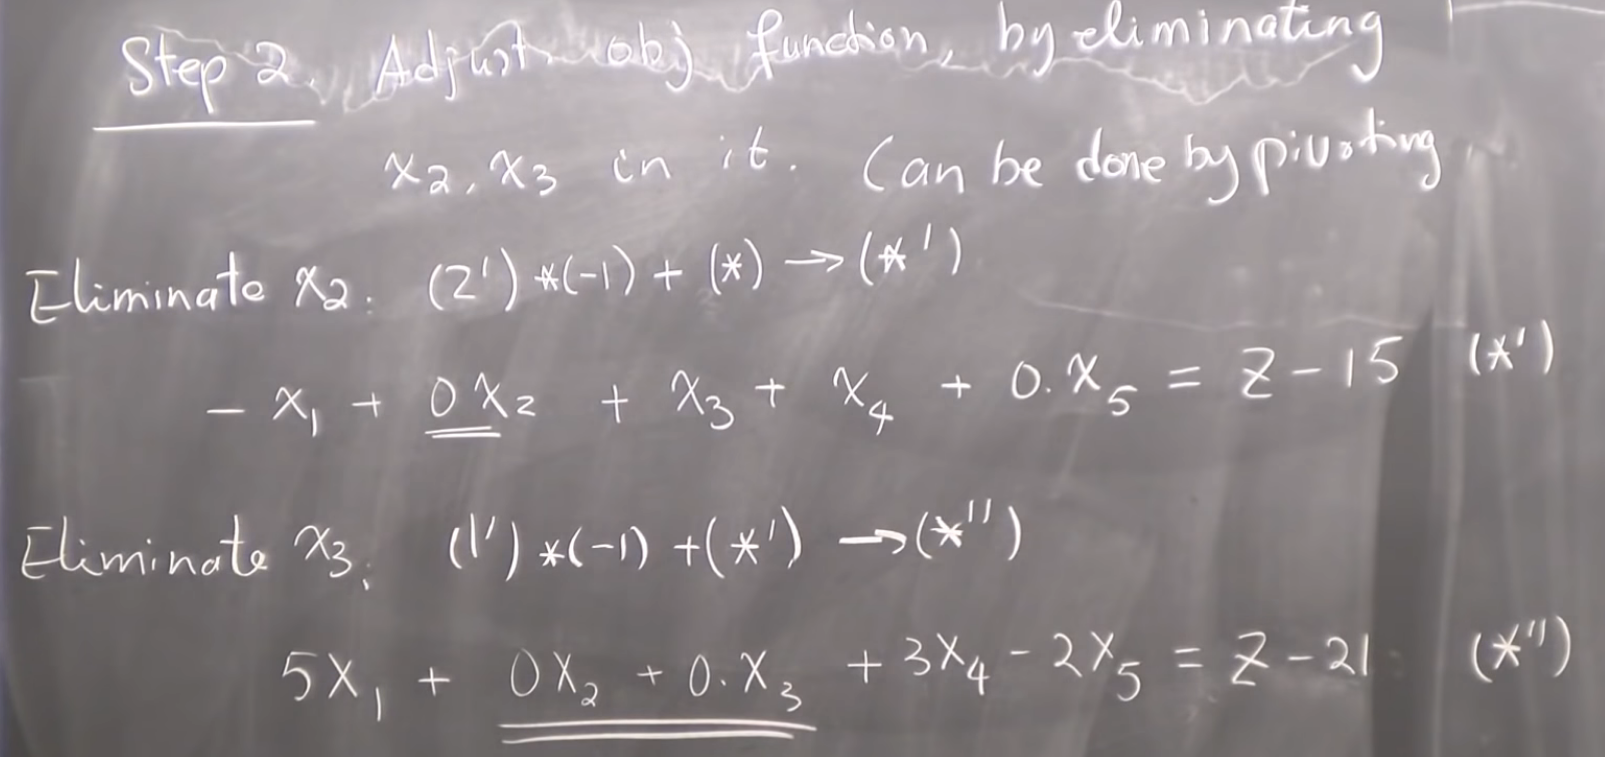 Step 2. Adjust obj function, by eliminating
x₂, x₃ in it. Can be done by pivoting
Eliminate x₂: (2') *(-1) + (*) → (*')
- x₁ + 0x₂ + x₃ + x₄ + 0.x₅ = z - 15 (*')
Eliminate x₃: (1') *(-1) + (*') → (*'')
5x₁ + 0x₂ + 0.x₃ + 3x₄ - 2x₅ = z - 21 (*'')